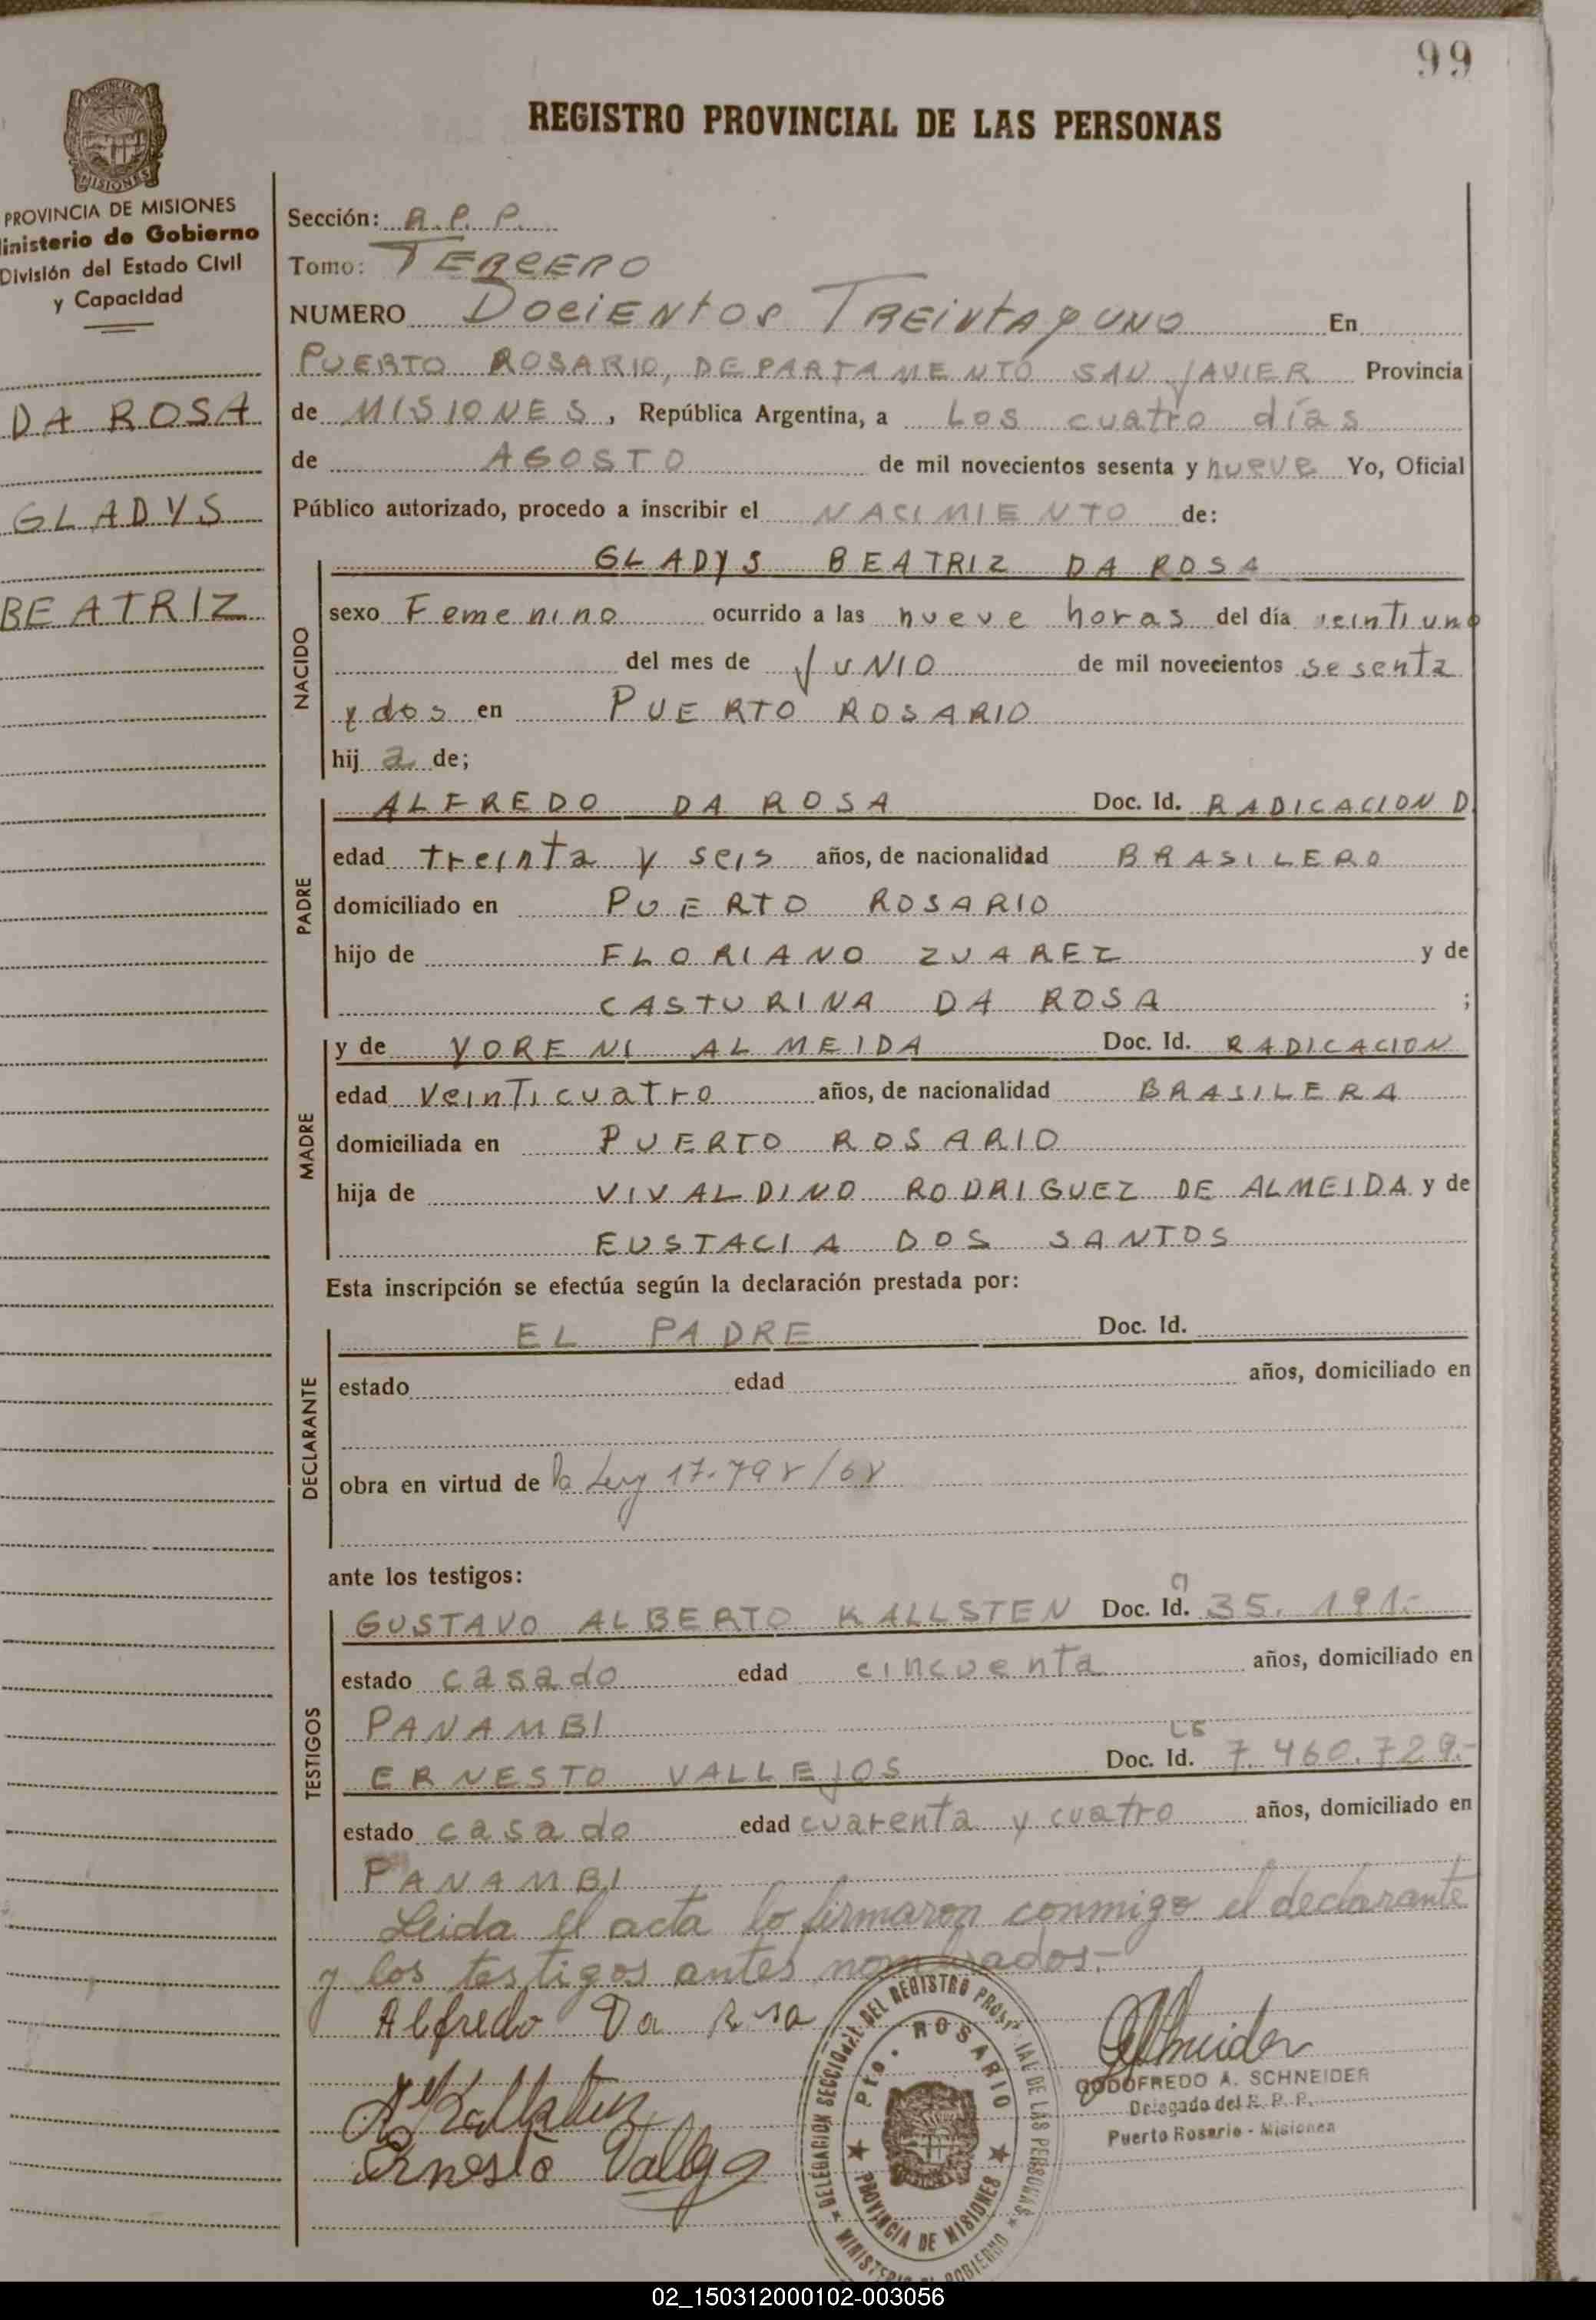 99
REGISTRO PROVINCIAL DE LAS PERSONAS
PROVINCIA DE MISIONES
PROVINCIA DE MISIONES
inisterio de Gobierno
División del Estado Civil
y Capacidad
DA ROSA
GLADYS
BEATRIZ
Sección: R.P.P.
Tomo: TERCERO
NUMERO DOCIENtOS TREINtA y UNO En
PUERTO ROSARIO, DEPARTAMENTO SAN JAVIER Provincia
de MISIONES, República Argentina, a Los cuatro días
de AGOSTO de mil novecientos sesenta y nueve Yo, Oficial
Público autorizado, procedo a inscribir el NACIMIENTO de:
NACIDO
GLADYS BEATRIZ DA ROSA
sexo Femenino ocurrido a las nueve horas del día veintiuno
del mes de JUNIO de mil novecientos sesenta
y dos en PUERTO ROSARIO
hij a de;
PADRE
ALFREDO DA ROSA Doc. Id. RADICACION D.
edad treinta y seis años, de nacionalidad BRASILERO
domiciliado en PUERTO ROSARIO
hijo de FLORIANO ZUAREZ y de
CASTURINA DA ROSA ;
MADRE
y de YORENI ALMEIDA Doc. Id. RADICACION
edad veinticuatro años, de nacionalidad BRASILERA
domiciliada en PUERTO ROSARIO
hija de VIVALDINO RODRIGUEZ DE ALMEIDA y de
EUSTACIA DOS SANTOS
Esta inscripción se efectúa según la declaración prestada por:
DECLARANTE
EL PADRE Doc. Id.
estado edad años, domiciliado en
obra en virtud de la Ley 17.798/68
ante los testigos:
TESTIGOS
GUSTAVO ALBERTO KALLSTEN Doc. Id. CI 35.191.-
estado casado edad cincuenta años, domiciliado en
PANAMBI
ERNESTO VALLEJOS Doc. Id. LE 7.460.729.-
estado casado edad cuarenta y cuatro años, domiciliado en
PANAMBI
Leida el acta lo firmaron conmigo el declarante
y los testigos antes nombrados.-
Alfredo Da Rosa
Kallsten
Ernesto Vallejo
GODOFREDO A. SCHNEIDER
Delegado del R. P. P.
Puerto Rosario - Misiones
DELEGACION SECCIONAL DEL REGISTRO PROVINCIAL DE LAS PERSONAS
Pto. ROSARIO
PROVINCIA DE MISIONES
MINISTERIO DE GOBIERNO
02_150312000102-003056